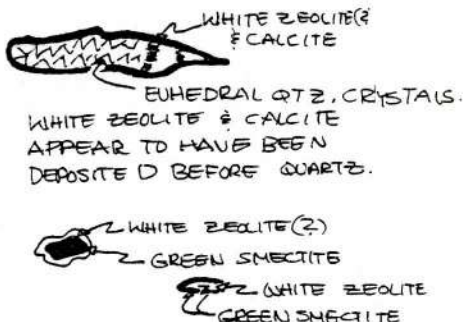 WHITE ZEOLITE(?
& CALCITE
EUHEDRAL QTZ. CRYSTALS.
WHITE ZEOLITE & CALCITE
APPEAR TO HAVE BEEN
DEPOSITED BEFORE QUARTZ.
WHITE ZEOLITE(?)
GREEN SMECTITE
WHITE ZEOLITE
GREEN SMECTITE